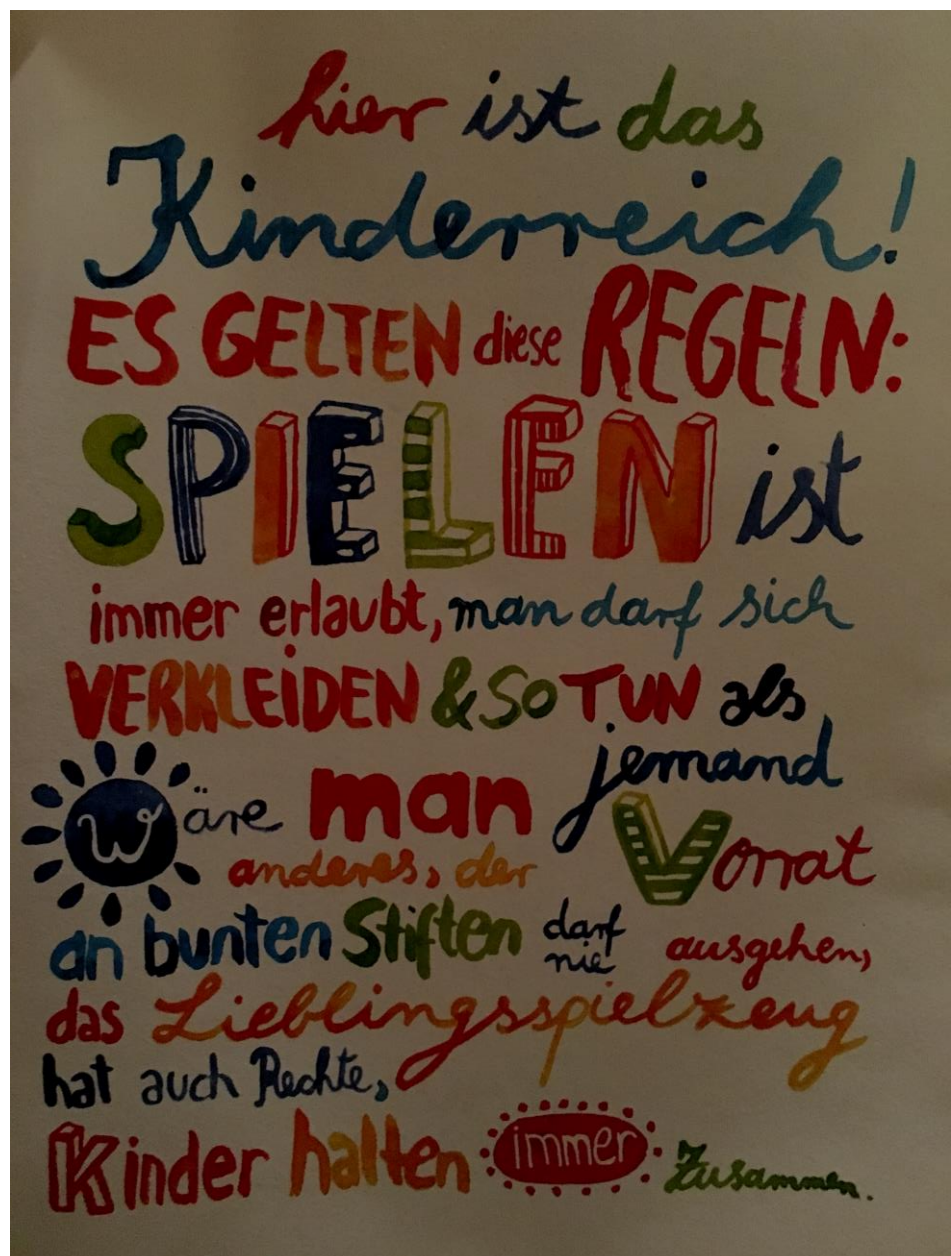 hier ist das
Kinderreich!
ES GELTEN diese REGELN:
SPIELEN ist
immer erlaubt, man darf sich
VERKLEiDEN & SO TUN als
wäre man jemand
anderes, der Vorrat
an bunten Stiften darf nie ausgehen,
das Lieblingsspielzeug
hat auch Rechte,
Kinder halten immer Zusammen.